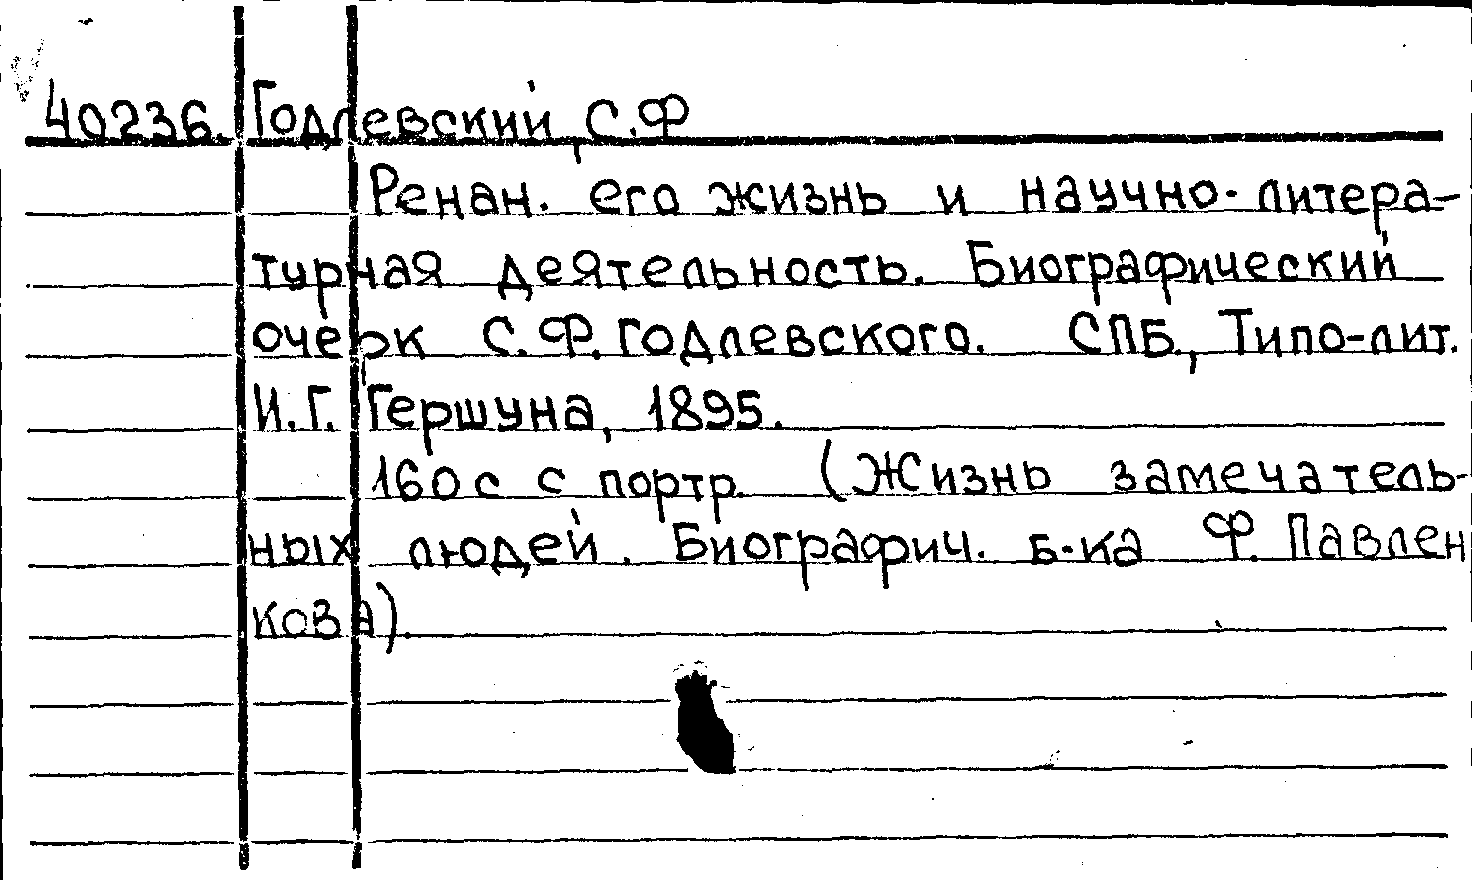 40236. Годлевский, С.Ф
Ренан. его жизнь и научно-литера-
турная деятельность. Биографический
очерк С.Ф. Годлевского. СПБ., Типо-лит.
И.Г. Гершуна, 1895.
160 с с портр. (Жизнь замечатель-
ных людей. Биографич. б-ка Ф. Павлен
кова).